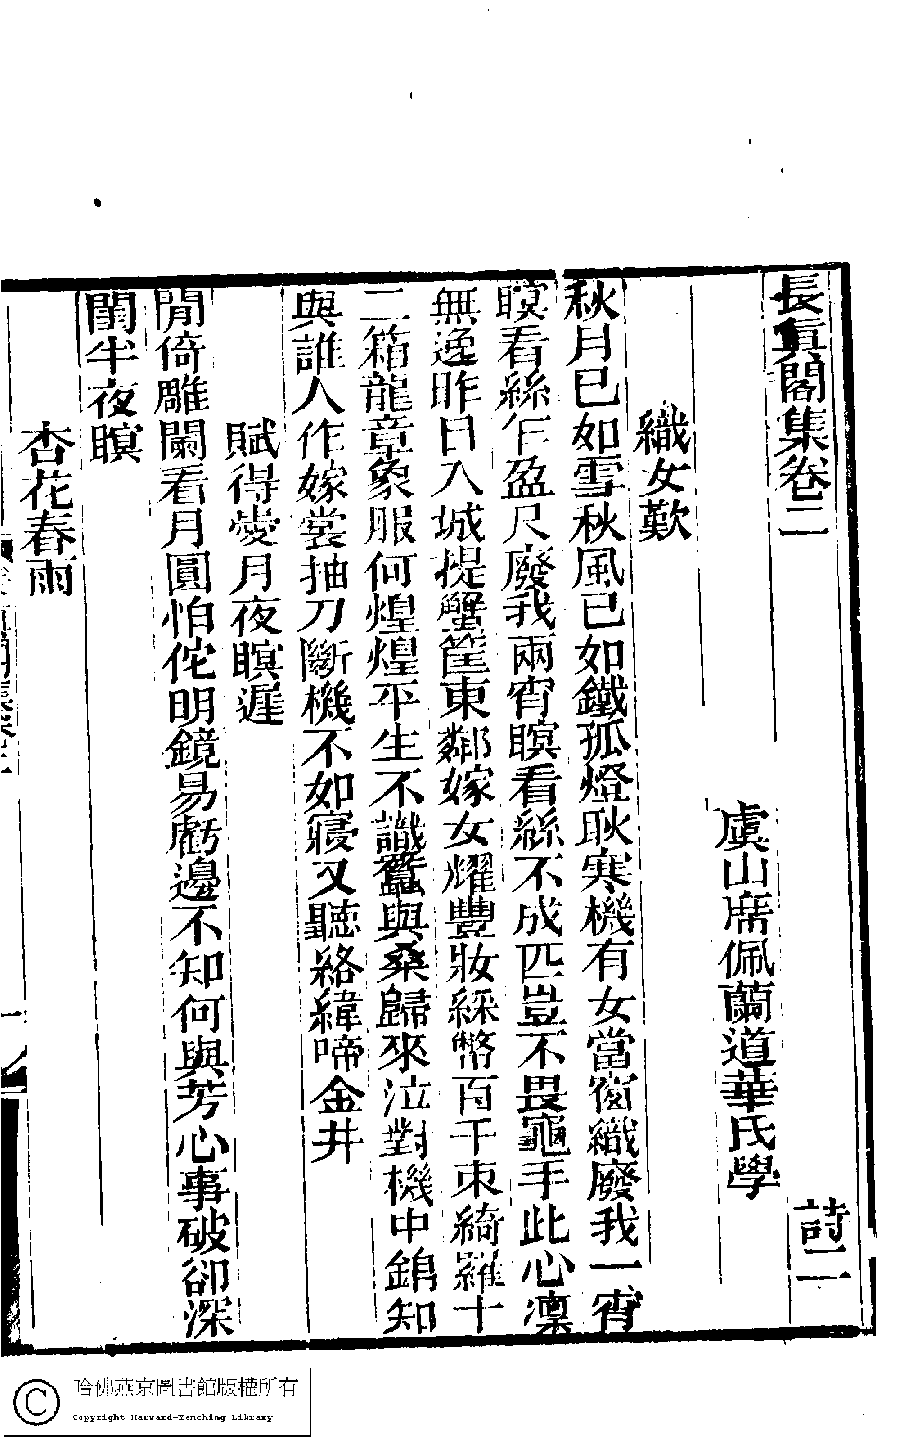 長眞閣集卷二 詩二
虞山席佩蘭道華氏學
織女歎
秋月已如雪秋風已如鐵孤燈耿寒機有女當窗織廢我一宵
瞑看絲乍盈尺廢我兩宵瞑看絲不成匹豈不畏龜手此心凜
無逸昨日入城提蟹筐東鄰嫁女耀豐妝綵幣百千束綺羅十
二箱龍章象服何煌煌平生不識蠶與桑歸來泣對機中錦知
與誰人作嫁裳抽刀斷機不如寢又聽絡緯啼金井
賦得愛月夜瞑遲
閒倚雕闌看月圓怕佗明鏡易虧邊不知何與芳心事破卻深
閨半夜瞑
杏花春雨
哈佛燕京圖書館版權所有
Copyright Harvard-Yenching Library